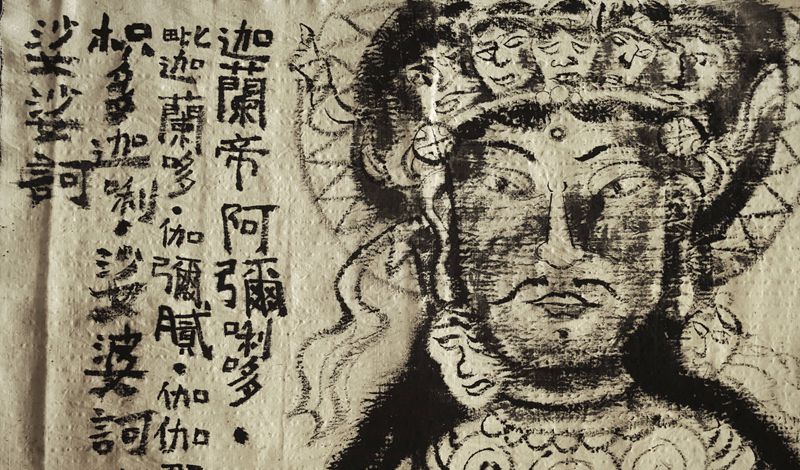 迦蘭帝 阿彌唎哆·
毗迦蘭哆·伽彌膩·伽伽
枳多迦唎·娑婆訶
娑婆訶